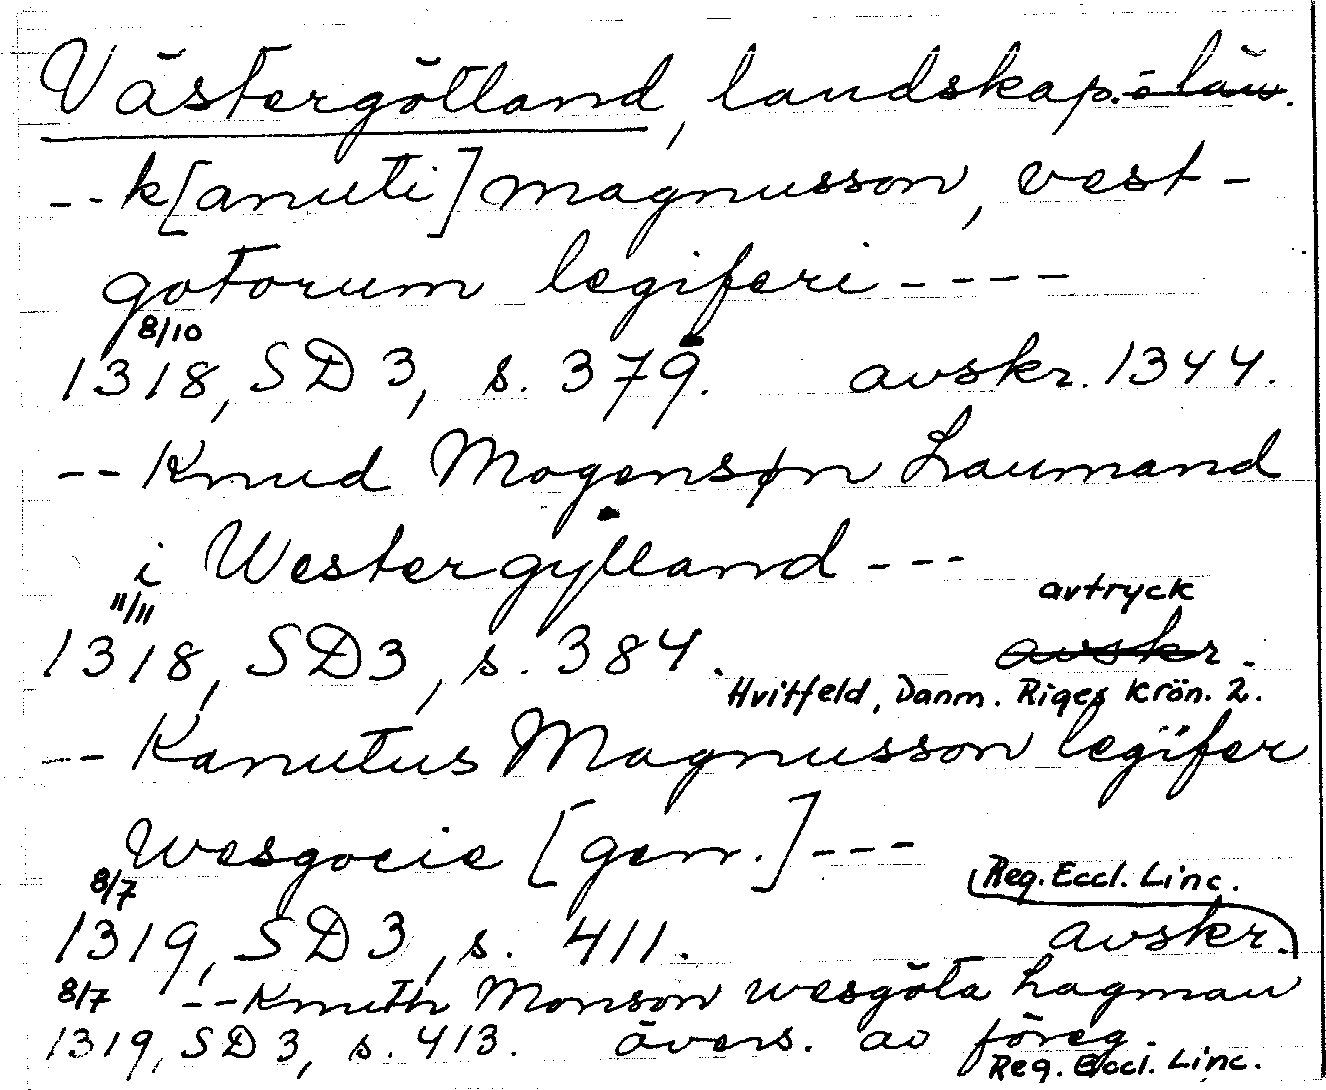 Västergötland, landskap. o län.
-- k[anuti] magnusson, vest-
gotorum legiferi ----
8/10
1318, SD 3, s. 379. avskr. 1344.
-- Knud Mogensøn Laumand
i Westergylland ---
11/11 avtryck
1318, SD 3, s. 384. avskr.
Hvitfeld, Danm. Riges Krön. 2.
-- Kanutus Magnusson legifer
Wesgocie [gen.] ---
8/7 Reg. Eccl. Linc.
1319, SD 3, s. 411. avskr.
8/7 -- Knuth Monson wesgöta lagman
1319, SD 3, s. 413. övers. av föreg.
Reg. Eccl. Linc.